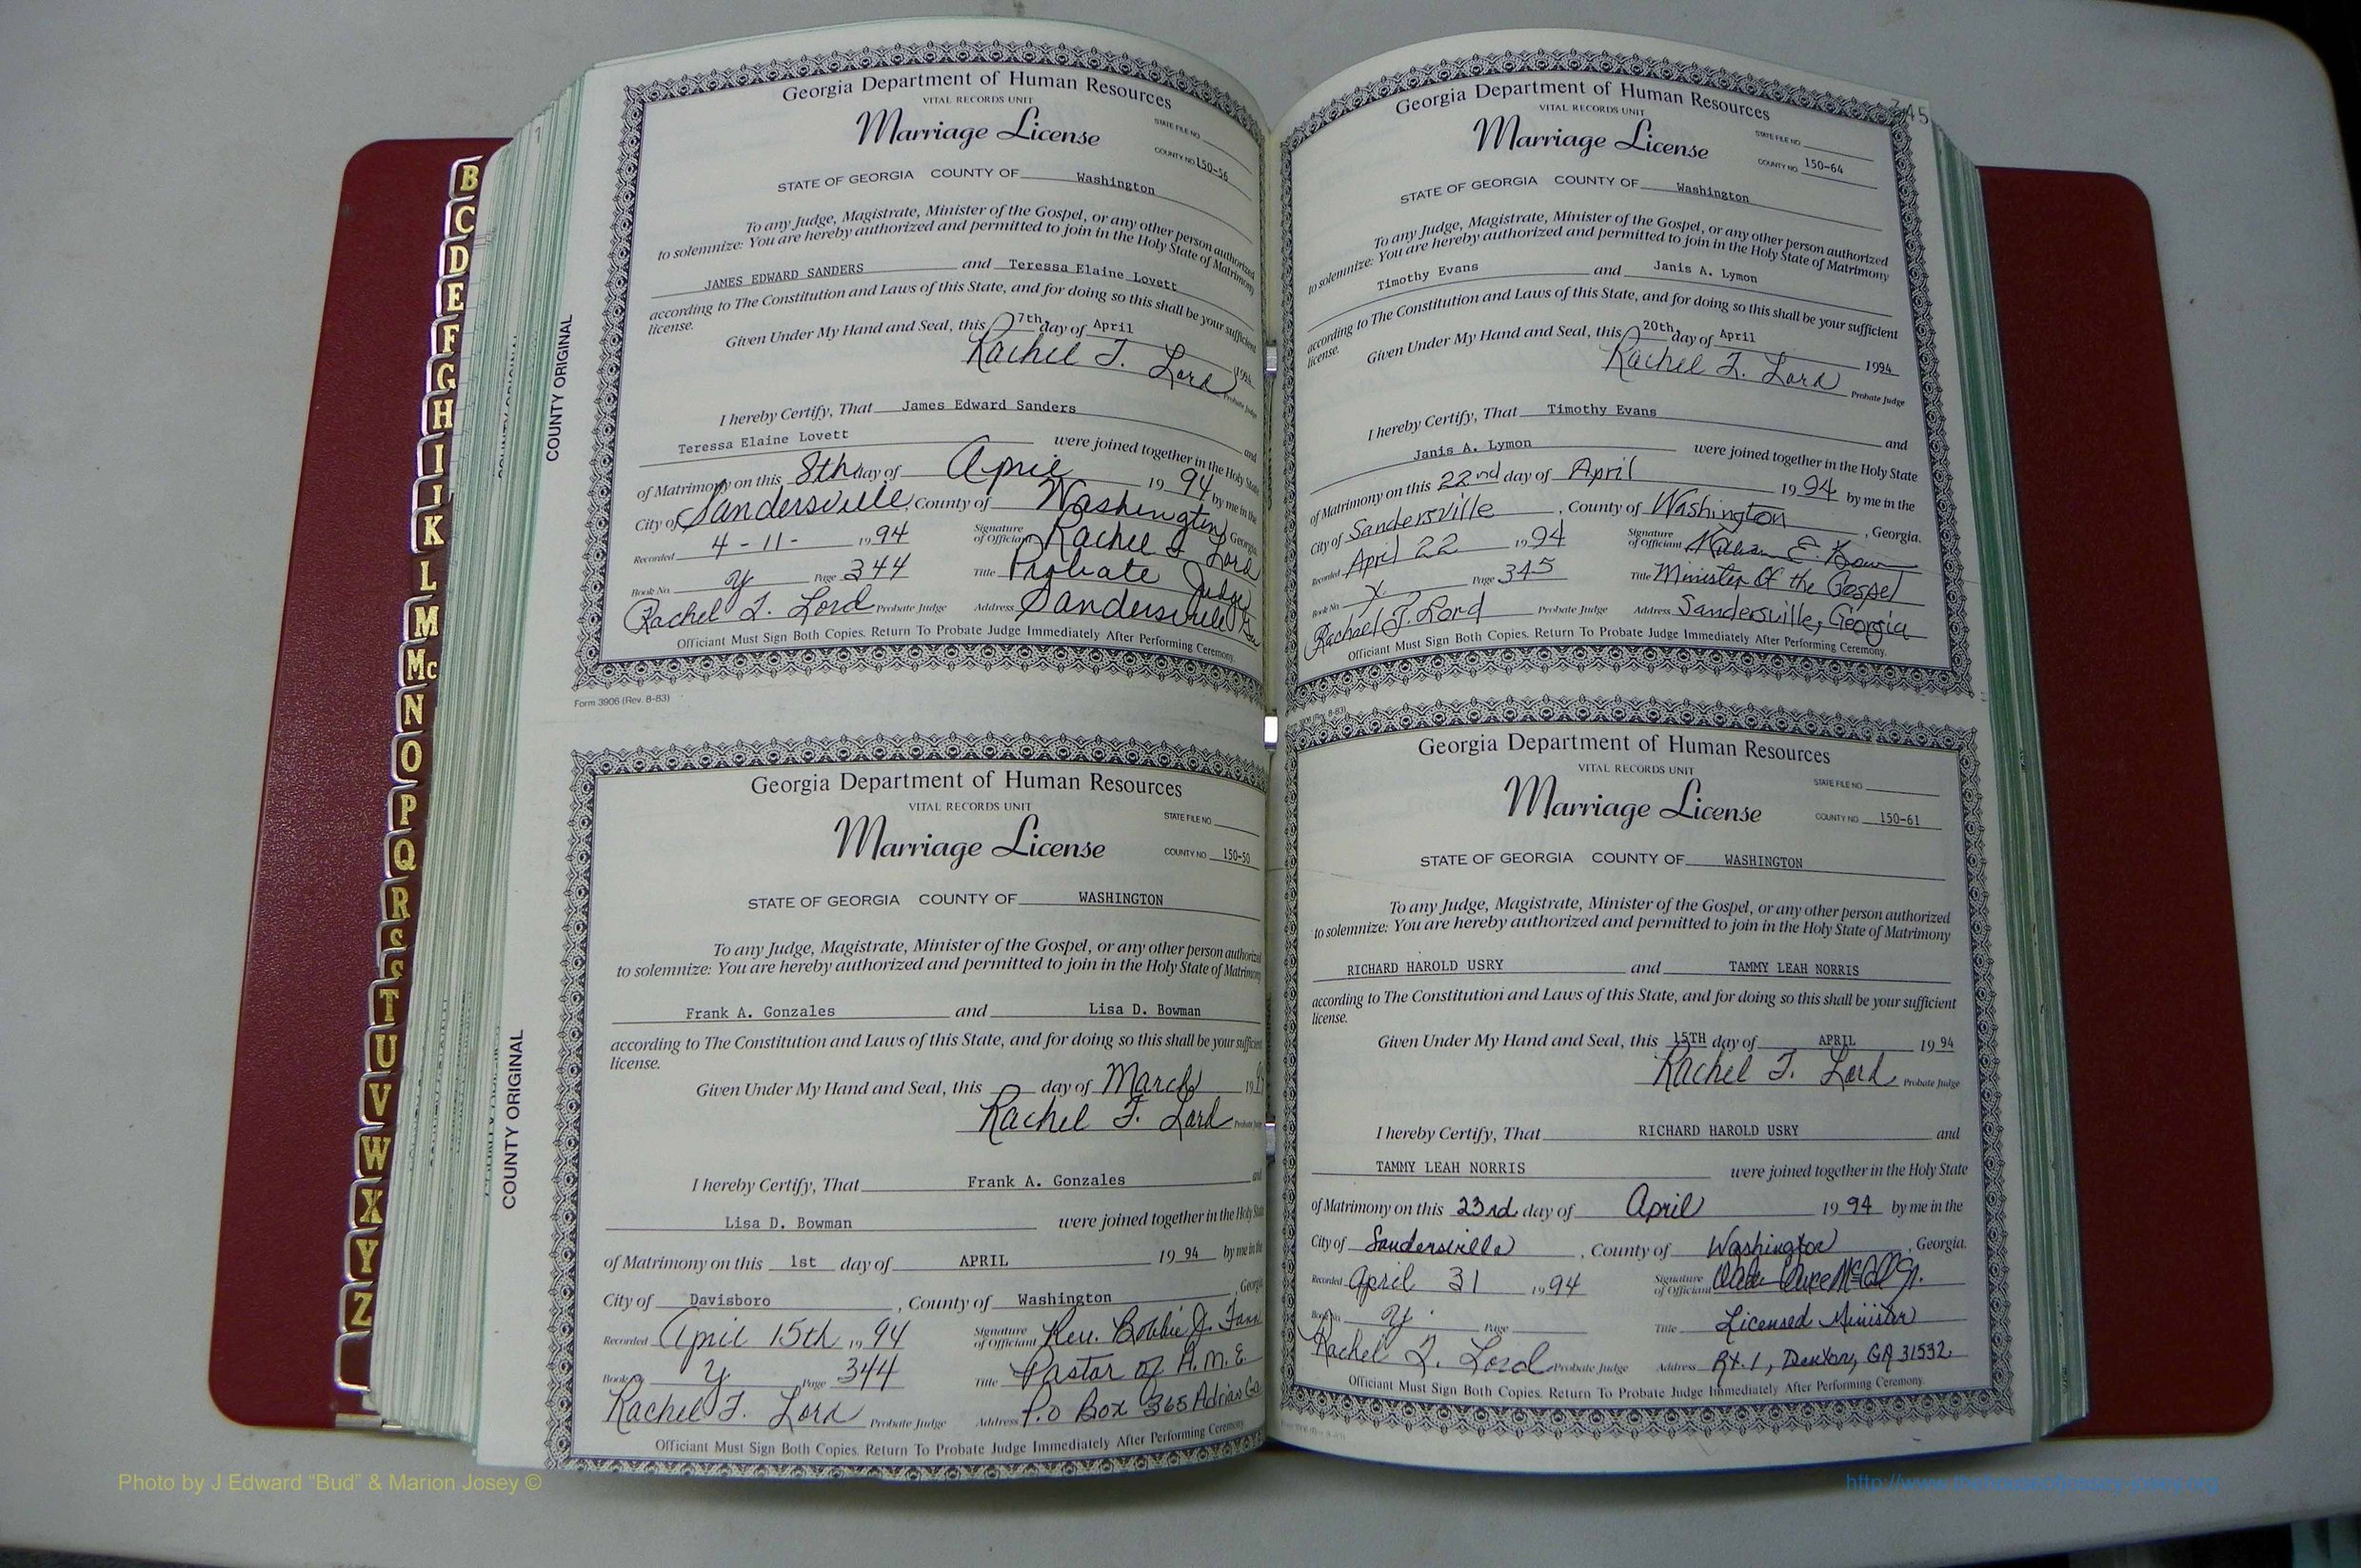 B
C
D
E
F
G
H
I
J
K
L
M
Mc
N
O
P
Q
R
S
S
T
U
V
W
X
Y
Z
COUNTY ORIGINAL
Georgia Department of Human Resources
VITAL RECORDS UNIT
Marriage License
STATE FILE NO.
COUNTY NO. 150-56
STATE OF GEORGIA COUNTY OF Washington
To any Judge, Magistrate, Minister of the Gospel, or any other person authorized
to solemnize: You are hereby authorized and permitted to join in the Holy State of Matrimony
JAMES EDWARD SANDERS and Teressa Elaine Lovett
according to The Constitution and Laws of this State, and for doing so this shall be your sufficient
license.
Given Under My Hand and Seal, this 7th day of April
Rachel T. Lord Probate Judge
I hereby Certify, That James Edward Sanders and
Teressa Elaine Lovett were joined together in the Holy State
of Matrimony on this 8th day of April 19 94 by me in the
City of Sandersville, County of Washington, Georgia
Recorded 4-11- 19 94 Signature of Officiant Rachel T. Lord
Book No. Y Page 344 Title Probate Judge
Rachel T. Lord Probate Judge Address Sandersville Ga
Officiant Must Sign Both Copies. Return To Probate Judge Immediately After Performing Ceremony.
Form 3906 (Rev. 8-83)
COUNTY ORIGINAL
Georgia Department of Human Resources
VITAL RECORDS UNIT
Marriage License
STATE FILE NO.
COUNTY NO. 150-50
STATE OF GEORGIA COUNTY OF WASHINGTON
To any Judge, Magistrate, Minister of the Gospel, or any other person authorized
to solemnize: You are hereby authorized and permitted to join in the Holy State of Matrimony
Frank A. Gonzales and Lisa D. Bowman
according to The Constitution and Laws of this State, and for doing so this shall be your sufficient
license.
Given Under My Hand and Seal, this day of March 19
Rachel T. Lord Probate Judge
I hereby Certify, That Frank A. Gonzales and
Lisa D. Bowman were joined together in the Holy State
of Matrimony on this 1st day of APRIL 19 94 by me in the
City of Davisboro, County of Washington, Georgia
Recorded April 15th 19 94 Signature of Officiant Rev. Bobbie J.
Book No. Y Page 344 Title Pastor of A.M.E.
Rachel T. Lord Probate Judge Address P.O Box 365 Adrian Ga
Officiant Must Sign Both Copies. Return To Probate Judge Immediately After Performing Ceremony.
345
Georgia Department of Human Resources
VITAL RECORDS UNIT
Marriage License
STATE FILE NO.
COUNTY NO. 150-64
STATE OF GEORGIA COUNTY OF Washington
To any Judge, Magistrate, Minister of the Gospel, or any other person authorized
to solemnize: You are hereby authorized and permitted to join in the Holy State of Matrimony
Timothy Evans and Janis A. Lymon
according to The Constitution and Laws of this State, and for doing so this shall be your sufficient
license.
Given Under My Hand and Seal, this 20th day of April 1994
Rachel T. Lord Probate Judge
I hereby Certify, That Timothy Evans and
Janis A. Lymon were joined together in the Holy State
of Matrimony on this 22nd day of April 19 94 by me in the
City of Sandersville, County of Washington, Georgia.
Recorded April 22 19 94 Signature of Officiant
Book No. Y Page 345 Title Minister Of the Gospel
Rachel T. Lord Probate Judge Address Sandersville, Georgia
Officiant Must Sign Both Copies. Return To Probate Judge Immediately After Performing Ceremony.
Georgia Department of Human Resources
VITAL RECORDS UNIT
Marriage License
STATE FILE NO.
COUNTY NO. 150-61
STATE OF GEORGIA COUNTY OF WASHINGTON
To any Judge, Magistrate, Minister of the Gospel, or any other person authorized
to solemnize: You are hereby authorized and permitted to join in the Holy State of Matrimony
RICHARD HAROLD USRY and TAMMY LEAH NORRIS
according to The Constitution and Laws of this State, and for doing so this shall be your sufficient
license.
Given Under My Hand and Seal, this 15TH day of APRIL 19 94
Rachel T. Lord Probate Judge
I hereby Certify, That RICHARD HAROLD USRY and
TAMMY LEAH NORRIS were joined together in the Holy State
of Matrimony on this 23rd day of April 19 94 by me in the
City of Sandersville, County of Washington, Georgia.
Recorded April 31 19 94 Signature of Officiant
Book No. Y. Page Title Licensed Minister
Rachel T. Lord Probate Judge Address Rt. 1, Denton, GA 31532
Officiant Must Sign Both Copies. Return To Probate Judge Immediately After Performing Ceremony.
Photo by J Edward "Bud" & Marion Josey ©